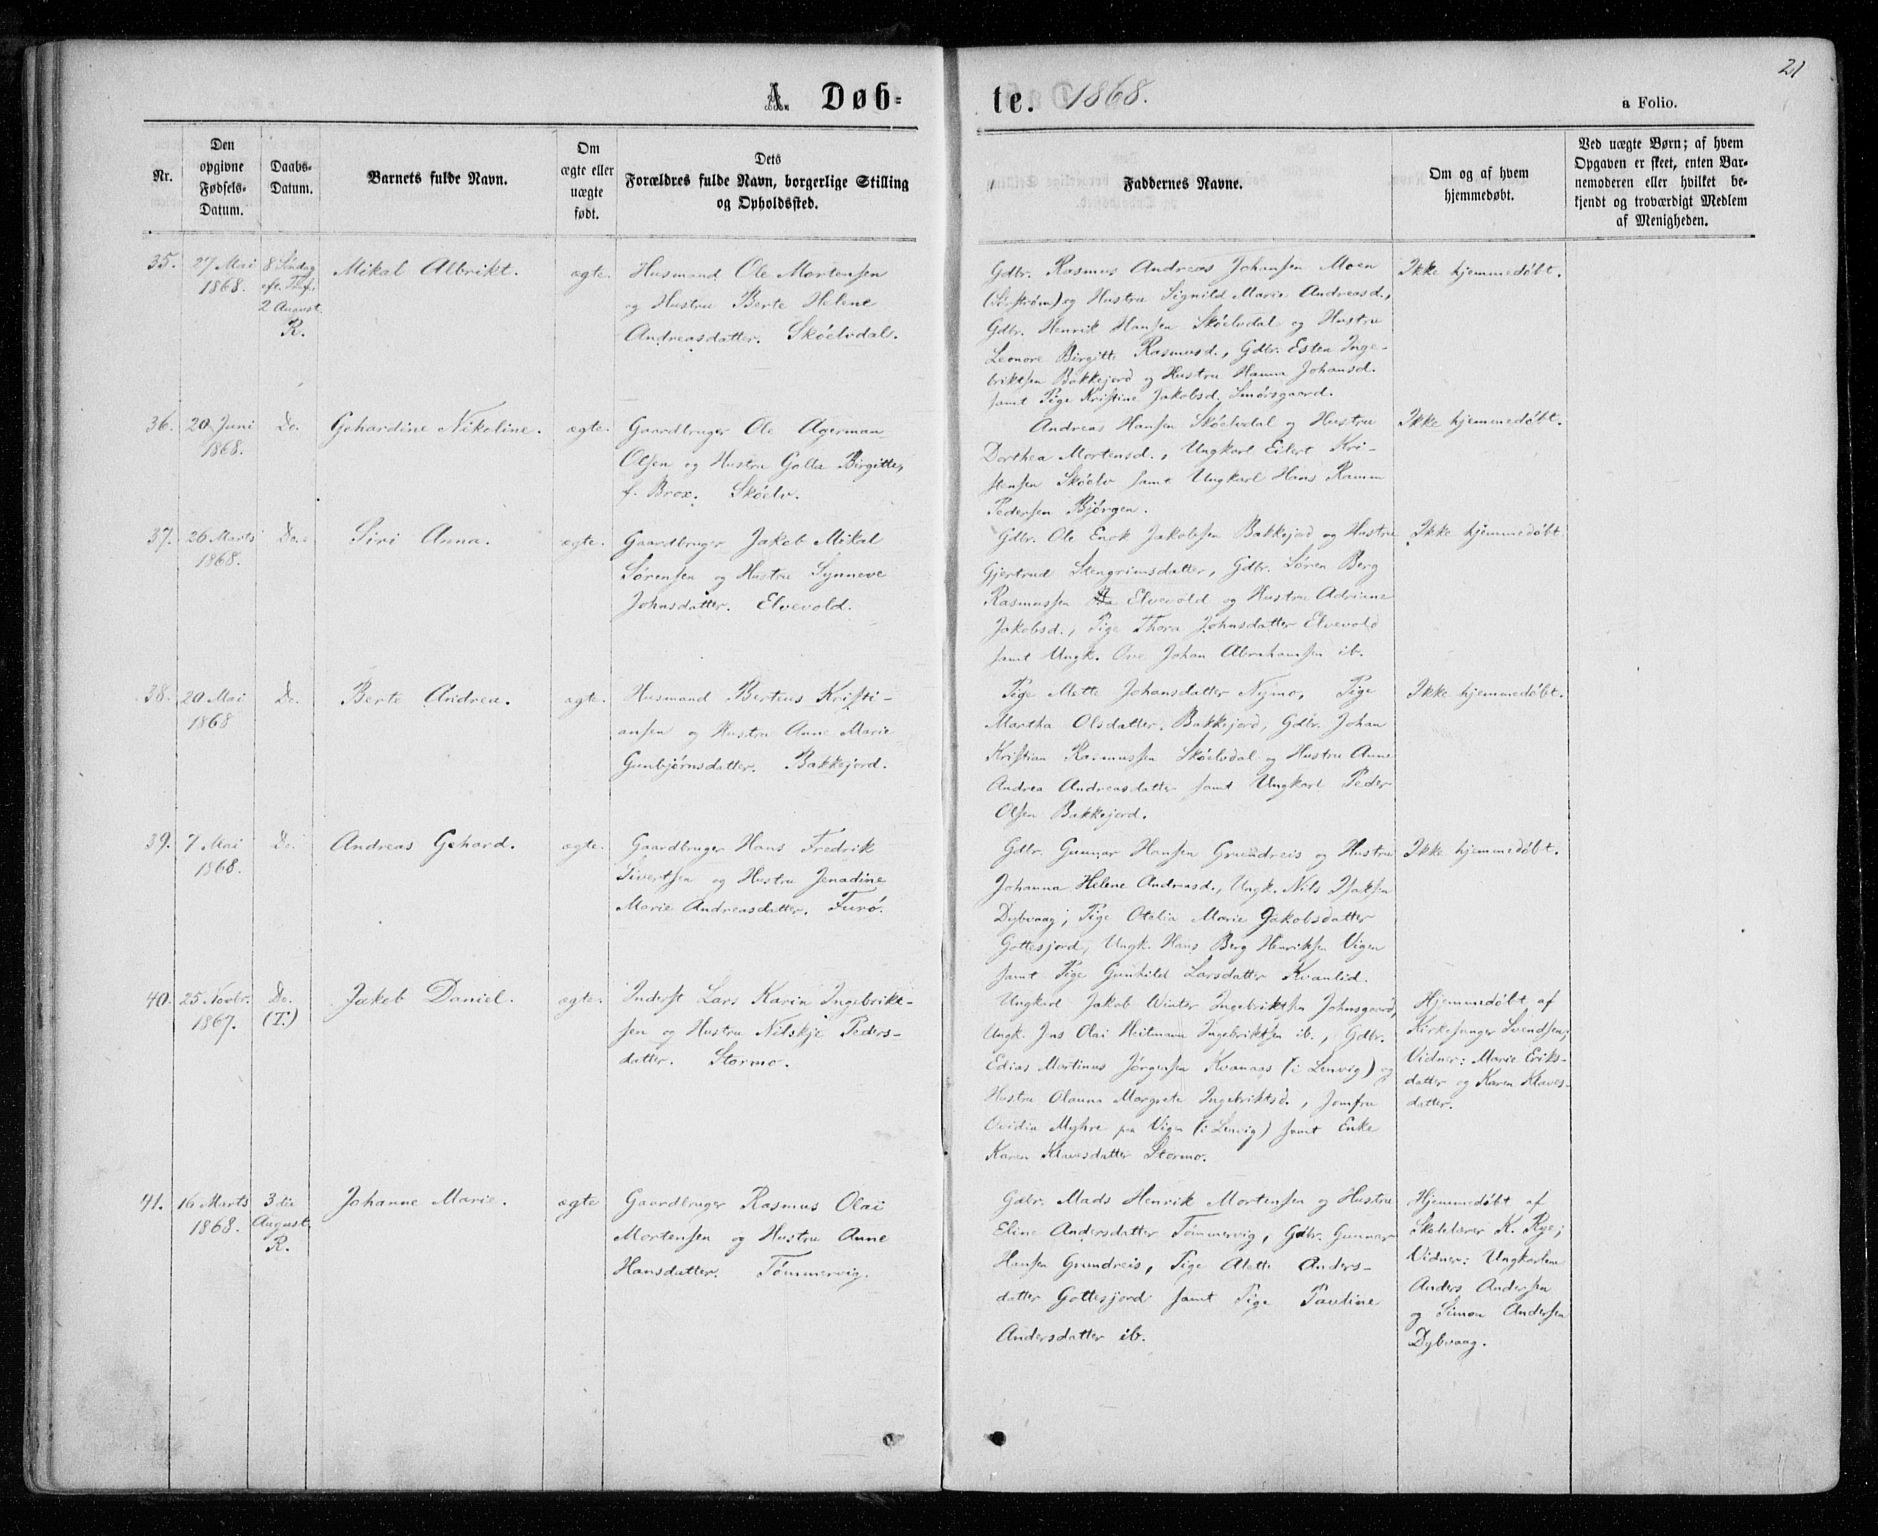 21
A. Døb-
te. 1868.
a Folio.
Nr.
Den
opgivne
Fødsels-
Datum.
Daabs-
Datum.
Barnets fulde Navn.
Om
ægte eller
uægte
født.
Dets
Forældres fulde Navn, borgerlige Stilling
og Opholdssted.
Faddernes Navne.
Om og af hvem
hjemmedøbt.
Ved uægte Børn; af hvem
Opgaven er skeet, enten Bar-
nemoderen eller hvilket be-
kjendt og troværdigt Medlem
af Menigheden.
35.
27 Mai
1868.
8 Søndag
eft. Tref.
2 August
R.
Mikal Albrikt.
ægte.
Husmand Ole Mortensen
og Hustru Berte Helene
Andreasdatter. Skøelvdal.
Gdbr. Rasmus Andreas Johansen Moen
(Sørstrøm) og Hustru Signild Marie Andreasd.,
Gdbr. Henrik Hansen Skøelvdal og Hustru
Leonore Birgitte Rasmusd., Gdbr. Esten Inge-
briktsen Bakkejord og Hustru Hanna Johansd.
samt Pige Kristine Jakobsd. Smørsgaard.
Ikke hjemmedøbt.
36.
20 Juni
1868.
Do.
Gehardine Nikoline.
ægte.
Gaardbruger Ole Agerman
Olsen og Hustru Golla Birgitte,
f. Brox. Skøelv.
Andreas Hansen Skøelvdal og Hustru
Dorthea Mortensd., Ungkarl Eilert Kri-
stensen Skøelv samt Ungkarl Hans Ramm
Pedersen Bjørgen.
Ikke hjemmedøbt.
37.
26 Marts
1868.
Do.
Siri Anna.
ægte.
Gaardbruger Jakob Mikal
Sørensen og Hustru Synneve
Johnsdatter. Elvevold.
Gdbr. Ole Enok Jakobsen Bakkejord og Hustru
Gjertrud Stengrimsdatter, Gdbr. Søren Berg
Rasmussen Elvevold og Hustru Adriane
Jakobsd., Pige Thora Johnsdatter Elvevold
samt Ungk. Ove Johan Abrahamsen ib.
Ikke hjemmedøbt
38.
20 Mai
1868
Do.
Berte Andrea.
ægte.
Husmand Bertius Kristi-
ansen og Hustru Anne Marie
Gunbjørnsdatter. Bakkejord.
Pige Mette Johansdatter Nymo, Pige
Martha Olsdatter Bakkejord, Gdbr. Johan
Kristian Rasmussen Skøelvdal og Hustru Anne
Andrea Andreasdatter samt Ungkarl Peder
Olsen Bakkejord.
Ikke hjemmedøbt.
39.
7 Mai
1868.
Do.
Andreas Gehard.
ægte.
Gaardbruger Hans Fredrik
Sivertsen og Hustru Jenadine
Marie Andreasdatter. Furø.
Gdbr. Gunnar Hansen Grundreis og Hustru
Johanna Helene Andreasd., Ungk. Nils Isaksen
Dybvaag; Pige Otelia Marie Jakobsdatter
Gottesjord, Ungk. Hans Berg Henriksen Vigen
samt Pige Gunhild Larsdatter Kvanlid.
Ikke hjemmedøbt.
40.
25 Novbr.
1867.
Do.
(T.)
Jakob Daniel.
ægte.
Inderst Lars Karin Ingebrikt-
sen og Hustru Nilskje Peders-
datter. Stormo.
Ungkarl Jakob Winter Ingebriktsen Johnsgaard,
Ungk. Jens Olai Heitmann Ingebriktsen ib., Gdbr.
Edias Martinus Jørgensen Kvanaas (i Lenvig) og
Hustru Olauna Margrete Ingebriktsd., Jomfru
Ovidia Myhre paa Vigen (i Lenvig) samt Enke
Karen Klavesdatter Stormo.
Hjemmedøbt af
Kirkesanger Svendsen;
Vidner: Marie Eriks-
datter og Karen Klaves-
datter.
41.
16 Marts
1868.
3die
August
R.
Johanne Marie.
ægte
Gaardbruger Rasmus Olai
Mortensen og Hustru Anne
Hansdatter. Tømmervig.
Gdbr. Mads Henrik Mortensen og Hustru
Eline Andersdatter Tømmervig, Gdbr. Gunnar
Hansen Grundreis, Pige Alette Anders-
datter Gottesjord samt Pige Pauline
Andersdatter ib.
Hjemmedøbt af
Skolelærer K. Rye;
Vidner: Ungkarlene
Anders Andersen
og Simon Andersen
Dybvaag.